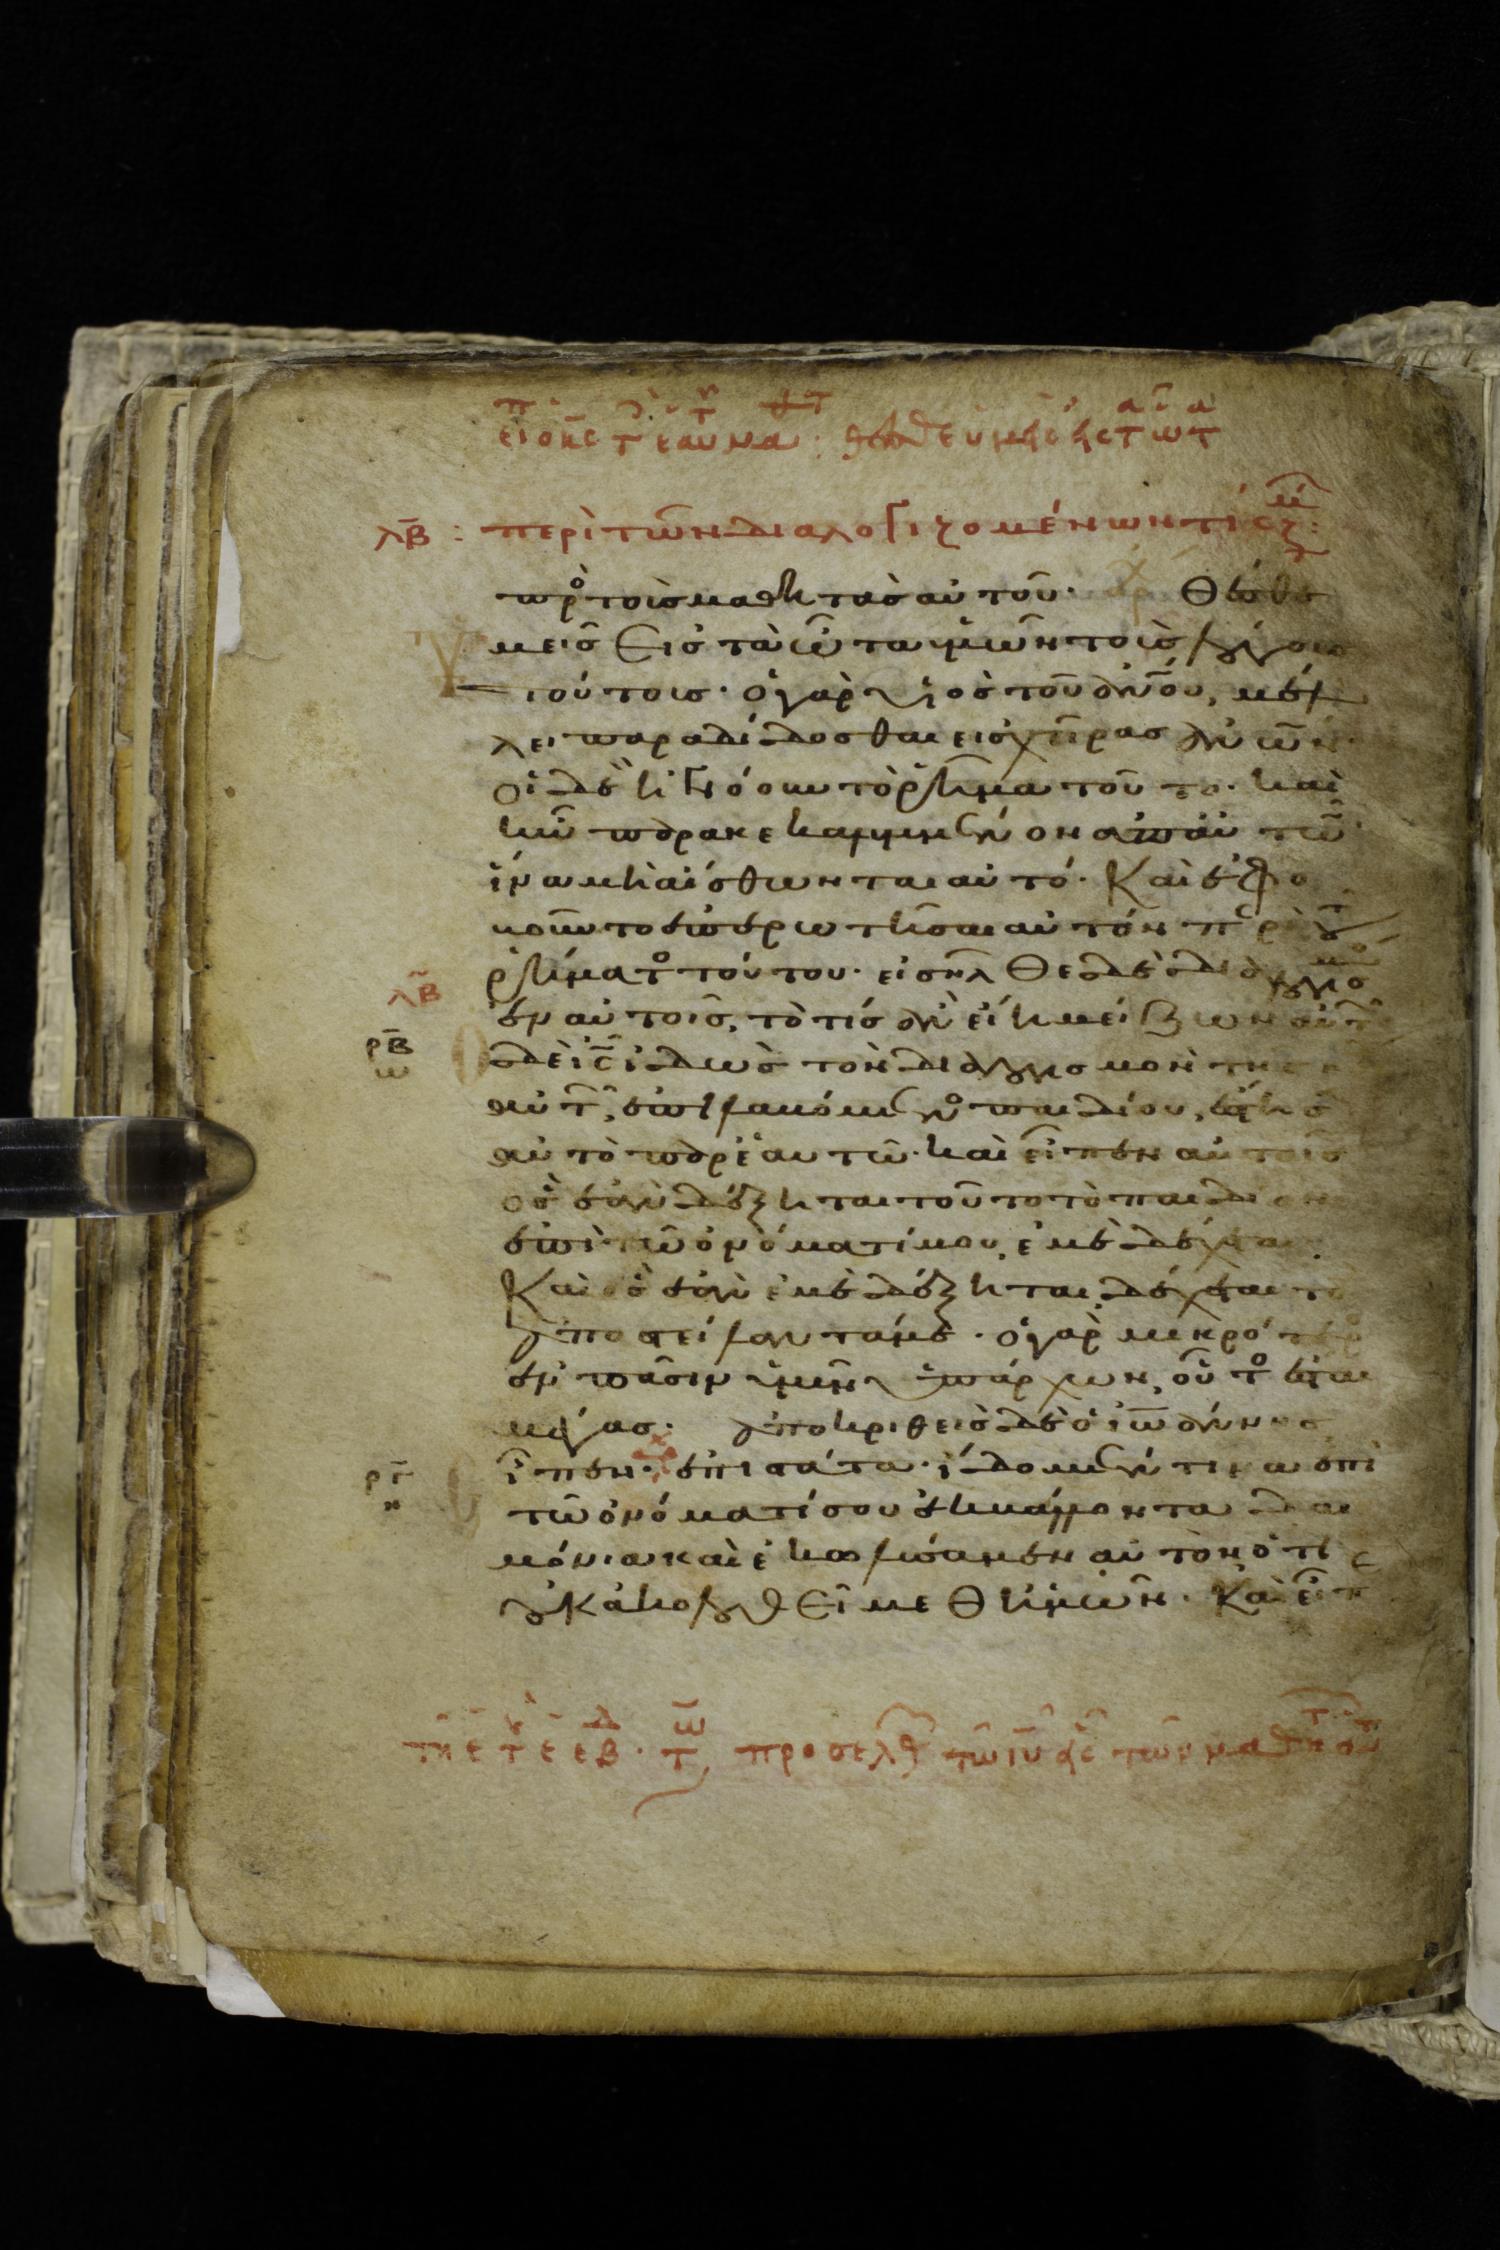 λβ : περὶ τῶν διαλογιζομένων τίς μείζ :
πρὸς τοὺς μαθητὰς αὐτοῦ· θέσθε
μεῖς εἰς τὰ ὦτα ὑμῶν τοὺς λόγους
τούτους· ὁ γὰρ υἱὸς τοῦ ἀνου, μέλ
λει παραδίδοσθαι εἰς χεῖρας ἀνων·
οἱ δὲ ἠγνόουν τὸ ῥῆμα τοῦτο· καὶ
ἦν παρακεκαλυμμένον ἀπ αὐτῶν
ἵνα μὴ αἴσθωνται αὐτό· Καὶ ἐφο
βοῦντο ἐπερωτῆσαι αὐτὸν περὶ τοῦ
ῥήματος τούτου· εἰσῆλθε δὲ διαλογισμὸς
λβ
ἐν αὐτοῖς, τὸ τίς ἂν εἴη μείζων αὐτῶν
ρβ
ὁ δὲ ις ἰδὼς τὸν διαλογισμὸν τῆς
αὐτῶν, ἐπιλαβόμενος παιδίου, ἔστησεν
αὐτὸ παρ ἑαυτῶ· καὶ εἶπεν αὐτοῖς
ὃς ἐὰν δέξηται τοῦτο τὸ παιδίον
ἐπὶ τῶ ὀνόματί μου, ἐμὲ δέχεται
Καὶ ὃς ἐὰν ἐμὲ δέξηται, δέχεται τὸν
ἀποστείλαντά με· ὁ γὰρ μικρότερος
ἐν πᾶσιν ὑμῖν ὑπάρχων, οὗτος ἔσται
μέγας· ἀποκριθεὶς δὲ ὁ ἰωάννης
ργ
εἶπεν· ἐπιστάτα· ἴδομέν τινα ἐπὶ
τῶ ὀνόματί σου ἐκβάλλοντα δαι
μόνια καὶ ἐκωλύσαμεν αὐτὸν ὅτι
οὐκ ἀκολουθεῖ μεθ ἡμῶν· Καὶ εἶπ